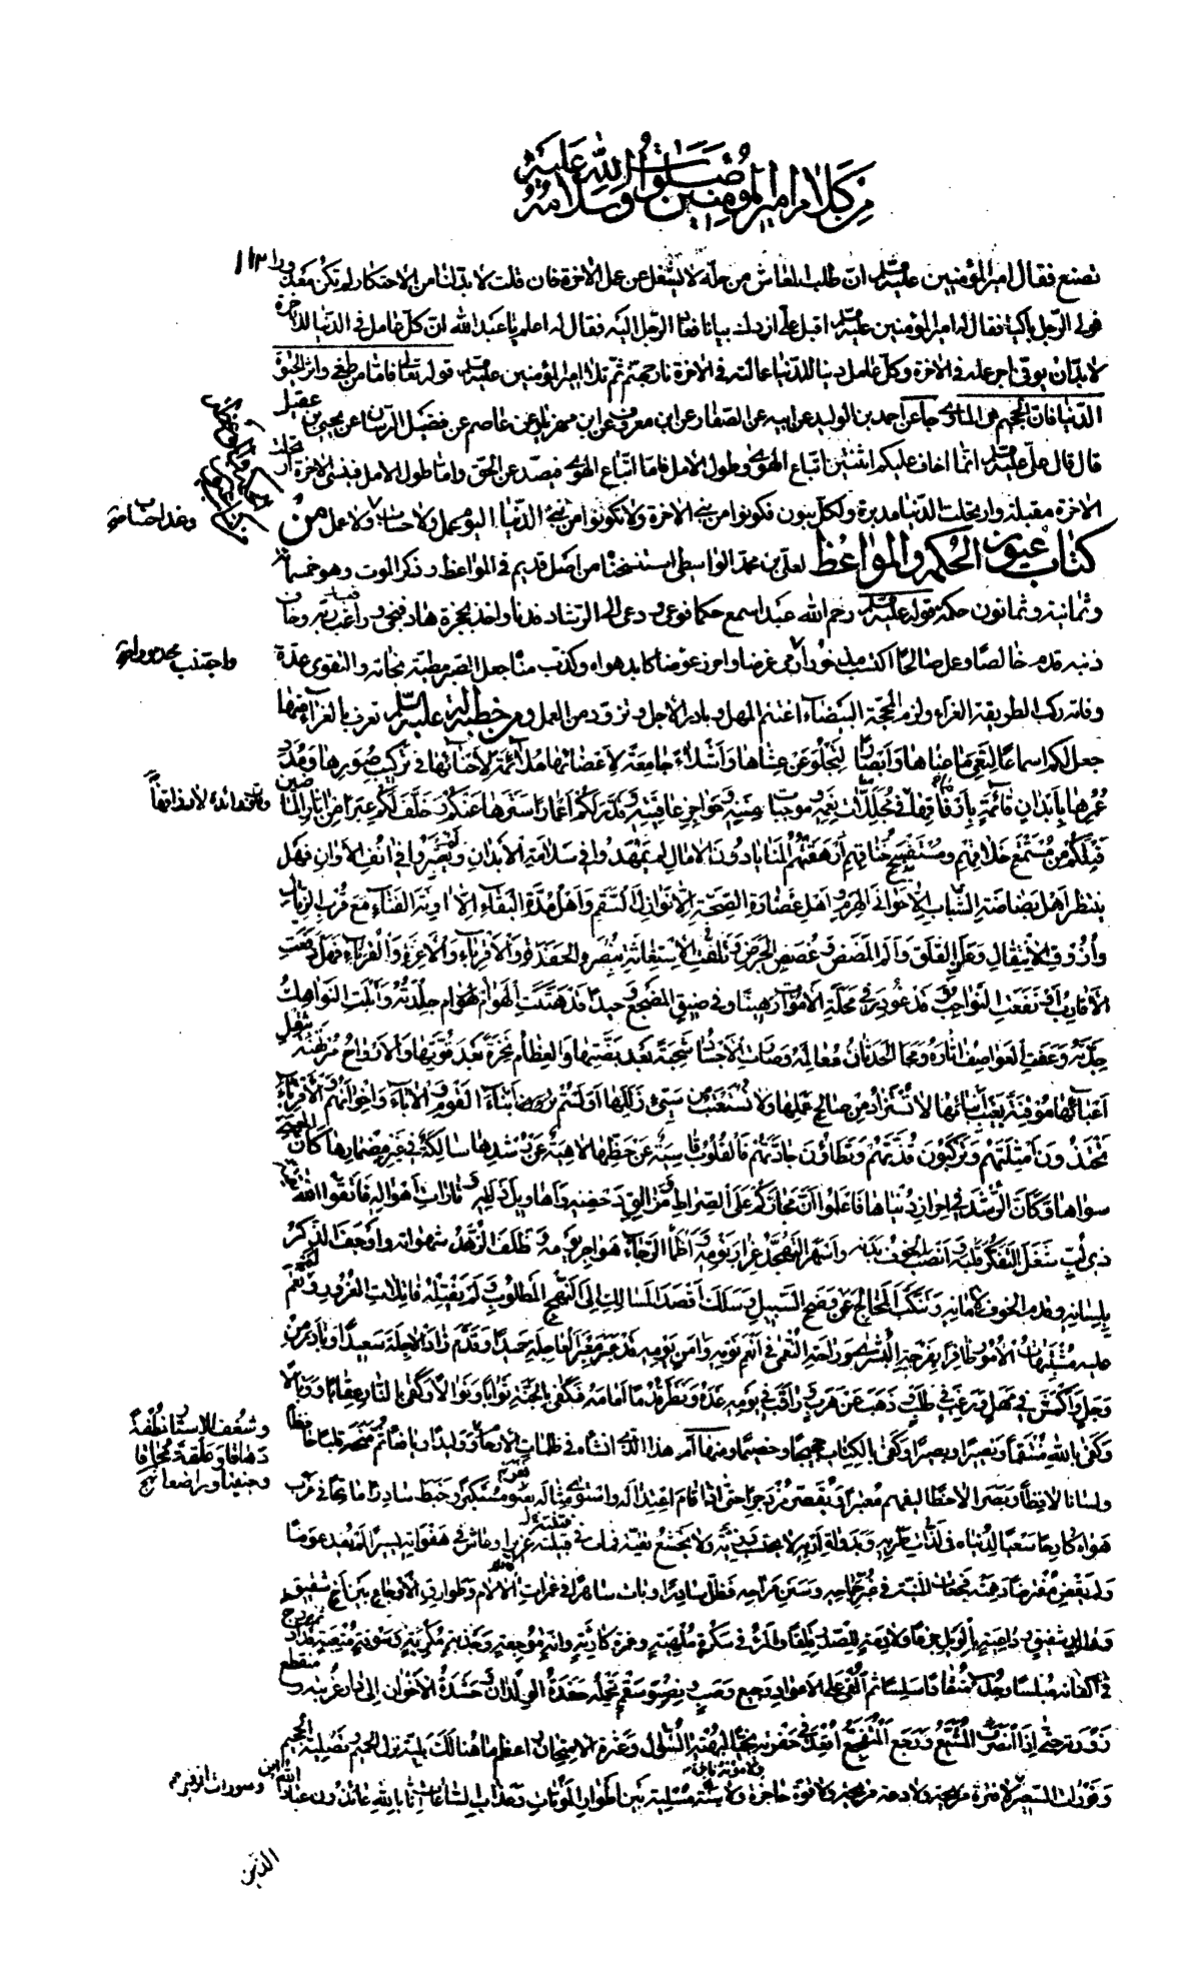 من كلام امير المؤمنين صلوات الله عليه وسلامه
تصنع فقال امير المؤمنين عليه السلم انّ طلب المعاش من حلّه لا يشغل عن عمل الاخرة فان قلت لا بدّ لنا من الاحتكار لم تكن معذورا ١١٣
فولى الرّجل باكيا فقال له امير المؤمنين عليه السلم اقبل علىّ ازدك بيانا فعاد الرّجل اليه فقال له اعلم يا عبد الله انّ كلّ عامل فى الدّنيا للاخرة
لا بدّ ان يوفى اجر عمله فى الاخرة وكلّ عامل دينا للدّنيا عمالته فى الاخرة نار جهنم ثمّ تلا امير المؤمنين عليه السلم قوله تعالى فامّا من طغى واثر الحيوة
الدّنيا فانّ الجحيم هى المأوى جا عن احمد بن الوليد عن ابيه عن الصفار عن ابن معروف عن ابن مهزيار عن عاصم عن فضيل الرسان عن يحيى بن عقيل
قال قال علىّ عليه السلم انّما اخاف عليكم اثنتين اتّباع الهوى وطول الامل فامّا اتّباع الهوى فيصدّ عن الحقّ وامّا طول الامل فينسى الاخرة ارتحلت
الاخرة مقبلة وارتحلت الدّنيا مدبرة ولكلّ بنون فكونوا من بنى الاخرة ولا تكونوا من بنى الدّنيا اليوم عمل ولا حساب ولا عمل من
وغدا حساب
كتاب عيون الحكم والمواعظ لعلىّ بن محمد الواسطى استنسخناه من اصل قديم فى المواعظ وذكر الموت وهو خمسمائة
وثمانية وثمانون حكمة قوله عليه السلم رحم الله عبدا سمع حكما فوعى ودعى الى الرّشاد فدنا واخذ بحجزة هاد فنجى وراقب ربّه وخاف
ذنبه قدم خالصا وعمل صالحا اكتسب مذخورا رمى غرضا واحرز عوضا كابد هواه وكذّب مناه جعل الصّبر مطيّة نجاته والتقوى عدّة
واجتنب محذورا
وفاته ركب الطريقة الغرّاء ولزم المحجّة البيضاء اغتنم المهل وبادر الاجل وتزوّد من العمل ومن خطبة له عليه السّلم تعرف بالغرّاء منها
جعل لكم اسماعا لتعى ما عناها وابصارا لتجلو عن عشاها واشلاء جامعة لاعضائها ملائمة لاحنائها فى تركيب صورها ومدد
عمرها بابدان قائمة بارفاقها فى مجلّلات نعمه وموجبات مننه وحواجز عافيته وقدّر لكم اعمارا سترها عنكم وخلّف لكم عبرا من اثار الماضين
قبلكم من مستمتع خلاقهم ومستفسح خناقهم ارهقتهم المنايا دون الامال لم يمهدوا فى سلامة الابدان ولم يعتبروا فى انف الاوان فهل
ينتظر اهل بضاضة الشّباب الّا حوانى الهرم واهل غضارة الصّحّة الّا نوازل السّقم واهل مدّة البقاء الّا اونة الفناء مع قرب الزّيال
وازوف الانتقال وعلز القلق والم المضض وغصص الجرض وتلفّت الاستغاثة بنصرة الحفدة والاقرباء والاعزّة والقرناء فهل دفعت
الاقارب او نفعت النّواحب وقد غودر فى محلّة الاموات رهينا وفى ضيق المضجع وحيدا قد هتكت الهوامّ جلدته وابلت النّواهك
جدّته وعفت العواصف اثاره ومحا الحدثان معالمه وصارت الاجساد شحبة بعد بضّتها والعظام نخرة بعد قوّتها والارواح مرتهنة بثقل
اعبائها موقنة بغيب انبائها لا تستزاد من صالح عملها ولا تستعتب من سيّئ زللها اولستم ابناء القوم والاباء واخوانهم والاقرباء
تحتذون امثلتهم وتركبون قدّتهم وتطاؤن جادّتهم فالقلوب قاسية عن حظّها لاهية عن رشدها سالكة فى غير مضمارها كانّ المعنىّ
سواها وكانّ الرّشد فى احراز دنياها فاعلموا انّ مجازكم على الصّراط ومزالق دحضه واهاويل زلله وتارات اهواله فاتّقوا الله
ذى لبّ شغل التّفكّر قلبه وانصب الخوف بدنه واسهر التّهجّد غرار نومه واظمأ الرّجاء هواجر يومه وظلف الزّهد شهواته واوجف الذّكر
بلسانه وقدّم الخوف لامانه وتنكّب المخالج عن وضح السّبيل وسلك اقصد المسالك الى النّهج المطلوب ولم تفتله فاتلات الغرور ولم تعم
عليه مشتبهات الامور ظافرا بفرحة البشرى وراحة النّعمى فى انعم نومه وامن يومه قد عبر معبر العاجلة حميدا وقدّم زاد الاجلة سعيدا وبادر من
وجل واكمش فى مهل ورغب فى طلب وذهب عن هرب وراقب فى يومه غده ونظر قدما امامه فكفى بالجنّة ثوابا ونوالا وكفى بالنّار عقابا ووبالا
وكفى بالله منتقما ونصيرا وكفى بالكتاب حجيجا وخصيما ومنها ام هذا الّذى انشأه فى ظلمات الارحام وليدا ويافعا ثمّ منحه قلبا حافظا
وشغف الاستار نطفة
دهاقا وعلقة محاقا
وجنينا وراضعا
ولسانا لافظا وبصرا لاحظا ليفهم معتبرا ويقصر مزدجرا حتّى اذا قام اعتداله واستوى مثاله نفر مستكبرا وخبط سادرا ماتحا فى غرب
هواه كادحا سعيا لدنياه فى لذّات طربه وبدوات اربه لا يحتسب رزيّة ولا يخشع تقيّة فمات فى فتنته غريرا وعاش فى هفوته يسيرا لم يفد عوضا
ولم يقض مفترضا دهمته فجعات المنيّة فى غبّر جماحه وسنن مراحه فظلّ سادرا وبات ساهرا فى غمرات الالام وطوارق الاوجاع بين اخ شقيق
ووالد شفيق وداعية بالويل جزعا ولادمة للصّدر قلقا والمرء فى سكرة ملهثة وغمرة كارثة وانّة موجعة وجذبة مكربة وسوقة متعبة
فى اكفانه مبلسا وجذب منقادا سلسا ثمّ القى على الاعواد رجيع وصب ونضو سقم تحمله حفدة الولدان وحشدة الاخوان الى دار غربته ومنقطع
زورته حتّى اذا انصرف المشيّع ورجع المتفجّع اقعد فى حفرته نجيّا لبهتة السّؤال وعثرة الامتحان واعظم ما هنالك بليّة نزل الحميم وتصلية الجحيم
وفورات السّعير لا فترة مريحة ولا دعة مزيحة ولا قوّة حاجزة ولا موتة ناجزة ولا سنة مسلية بين اطوار الموتات وعذاب السّاعات انّا بالله عائذون عباد الله اين
وسورات الزفير
الذين